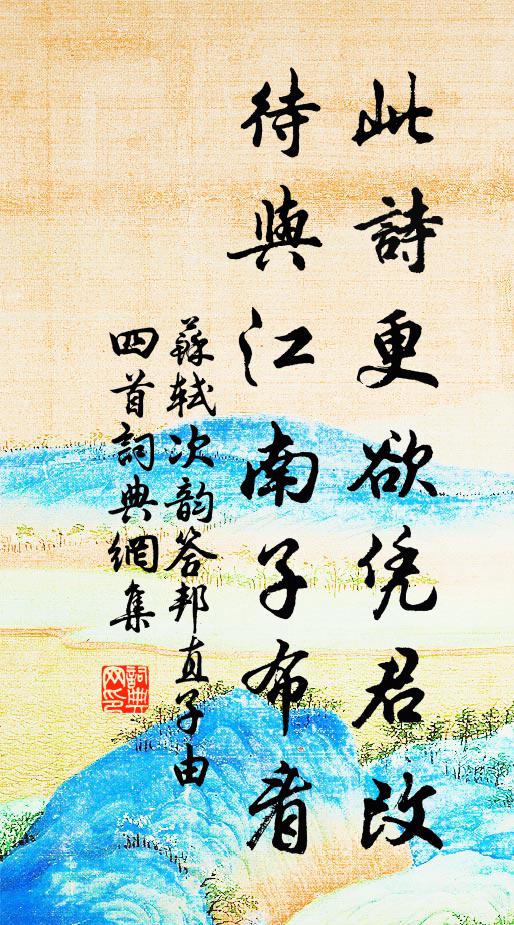 此詩更欲凭君改
待與江南子布看
蘇軾次韵答邦直子由
四首詞典網集
詞典网印